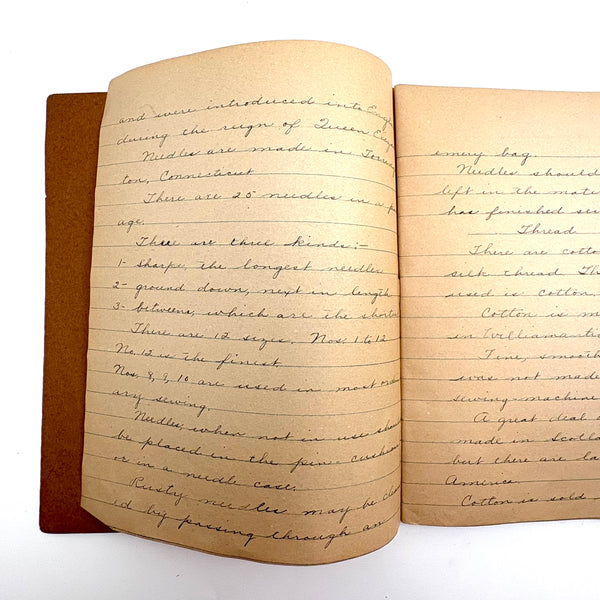 and were introduced into Eng
during the reign of Queen Eliz
Needles are made in Torring
ton, Connecticut
There are 25 needles in a p
age.
There are three kinds:-
1- sharps, the longest needles
2- ground down, next in length
3- betweens, which are the shortes
There are 12 sizes, Nos. 1 to 12
No. 12 is the finest.
Nos. 8, 9, 10 are used in most ord
ary sewing.
Needles, when not in use shou
be placed in the pin-cushion
or in a needle case.
Rusty needles may be clean
ed by passing through an
emery bag.
Needles should
left in the mater
has finished sew
Thread
There are cotto
silk thread. Th
used is cotton.
Cotton is m
in Willimantic
Fine, smooth
was not made
sewing-machine
A great deal o
made in Scotla
but there are la
America.
Cotton is sold